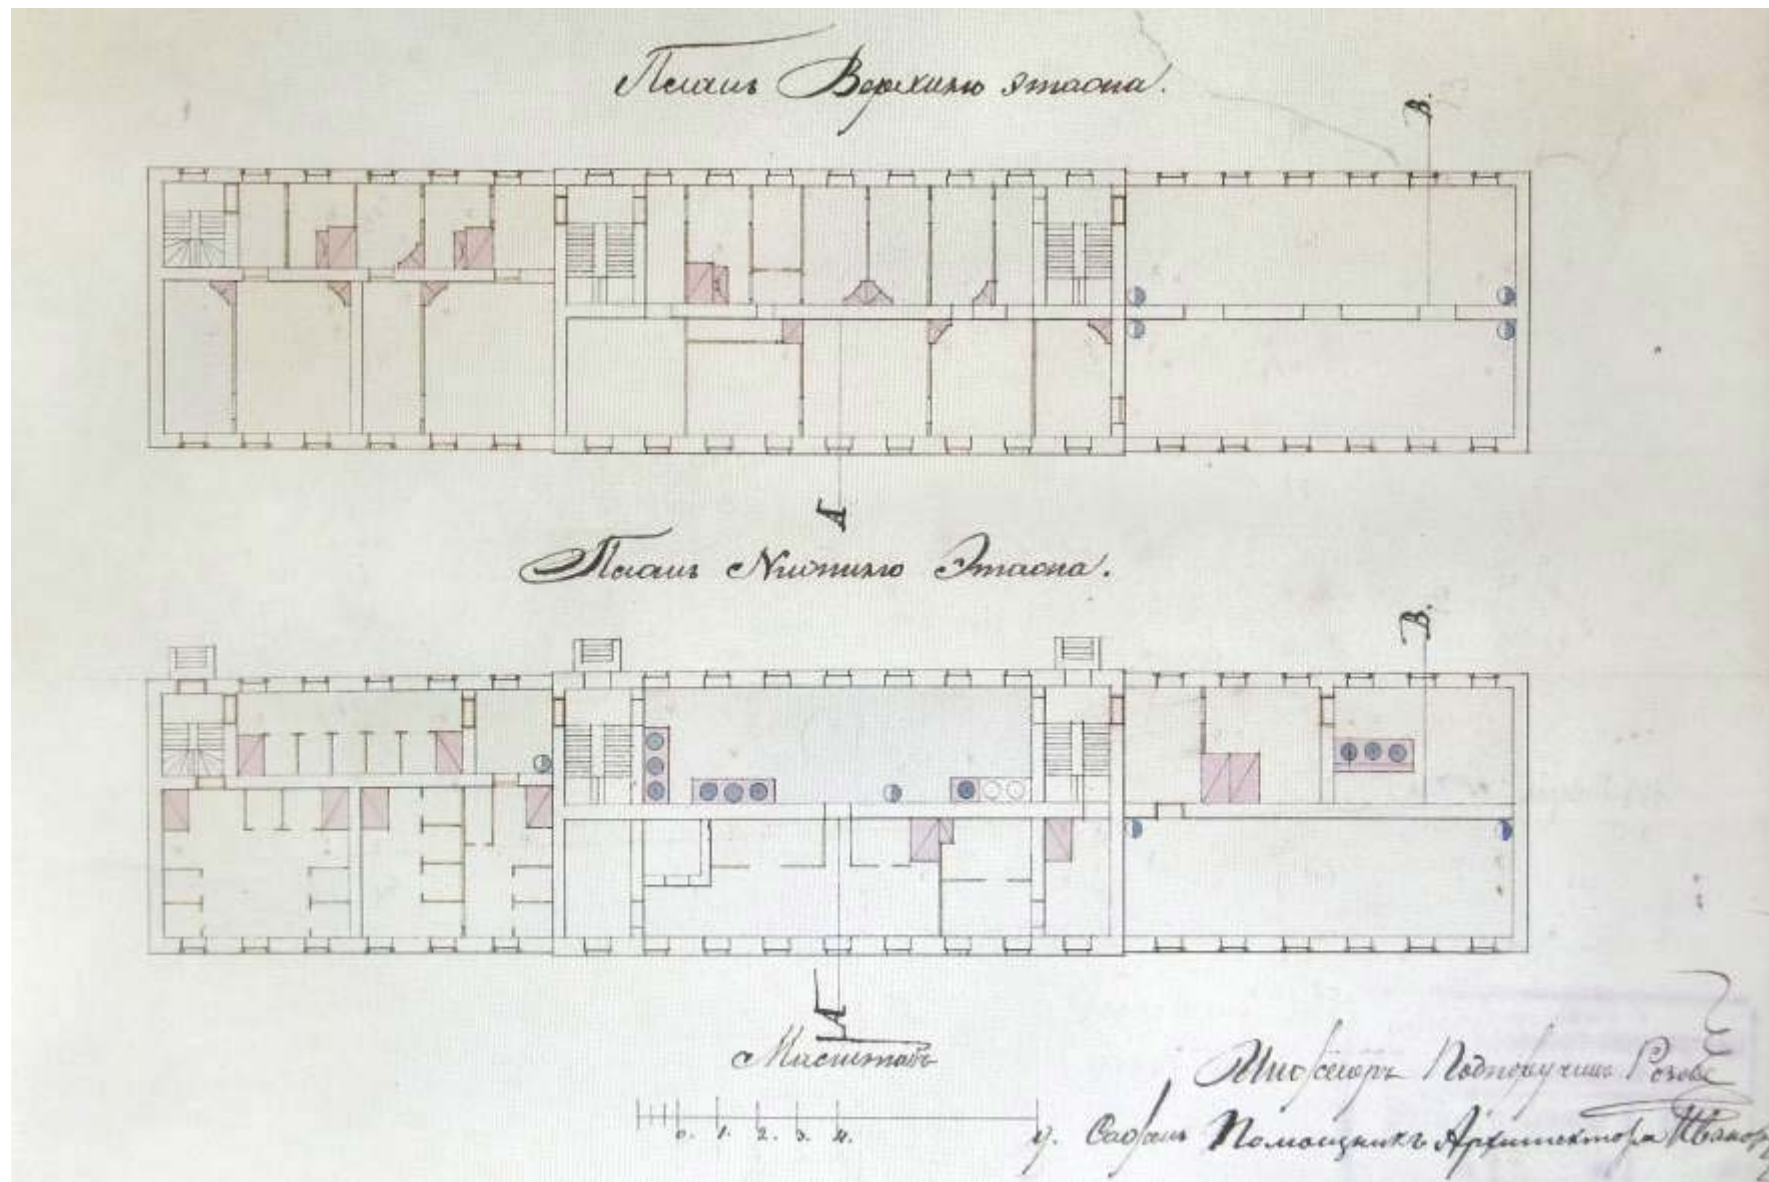 Планъ Верхняго этажа.
В.
А
Планъ Нижняго Этажа.
В.
А
Масштабъ
0. 1. 2. 3. 4. 9.
Инженеръ Подпоручикъ
Помощникъ Архитектора